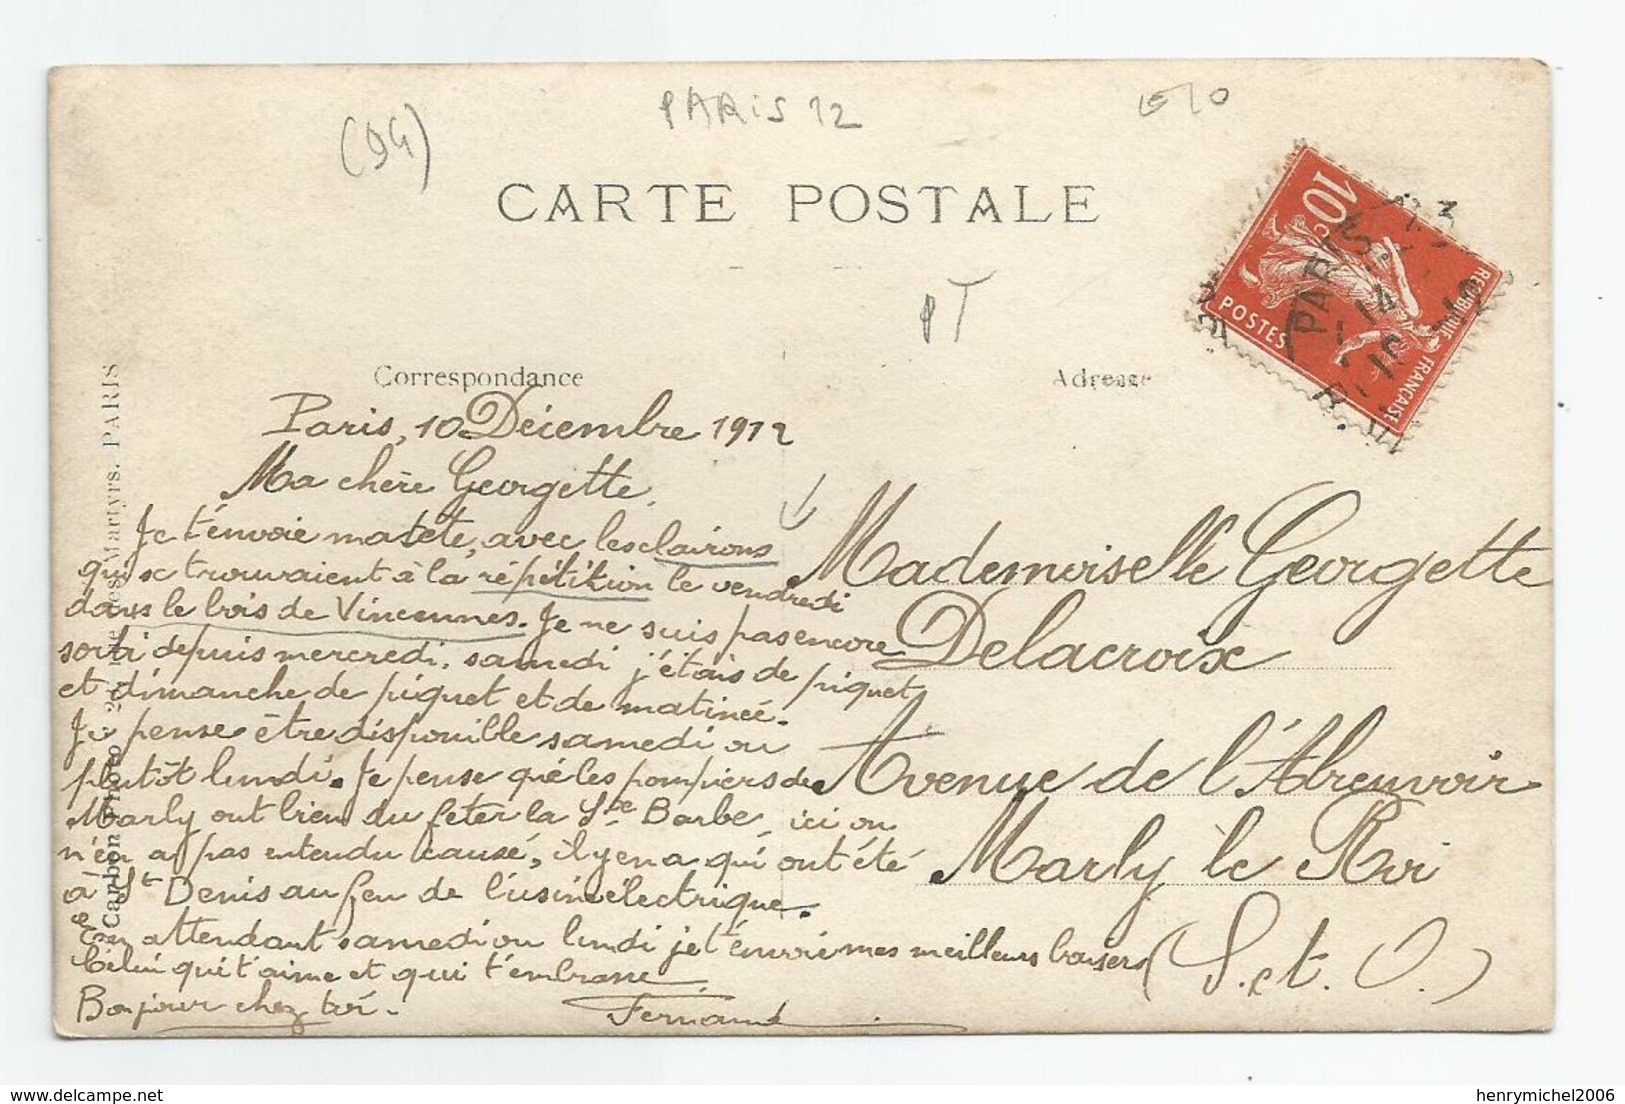 (94)
PARIS 12
CARTE POSTALE
PT
10c
POSTES
REPUBLIQUE FRANÇAISE
PARIS
Correspondance
Adresse
Paris, 10 Décembre 1912
Ma chère Georgette,
Je t'envoie ma tête, avec les clairons
qui se trouvaient à la répétition le vendredi
dans le bois de Vincennes. Je ne suis pas encore
sorti depuis mercredi, samedi j'étais de piquet
et dimanche de piquet et de matinée.
Je pense être disponible samedi ou
plutôt lundi. Je pense que les pompiers de
Marly ont bien du feter la Ste Barbe, ici on
n'en a pas entendu causé, il y en a qui ont été
à St Denis au feu de l'usine électrique.
En attendant samedi ou lundi je t'envoie mes meilleurs baisers
Celui qui t'aime et qui t'embrasse.
Bonjour chez toi.
Fernand
Mademoiselle Georgette
Delacroix
Avenue de l'Abreuvoir
Marly le Roi
(S. et. O.)
Carbon Photo Martyrs. PARIS
henrymichel2006